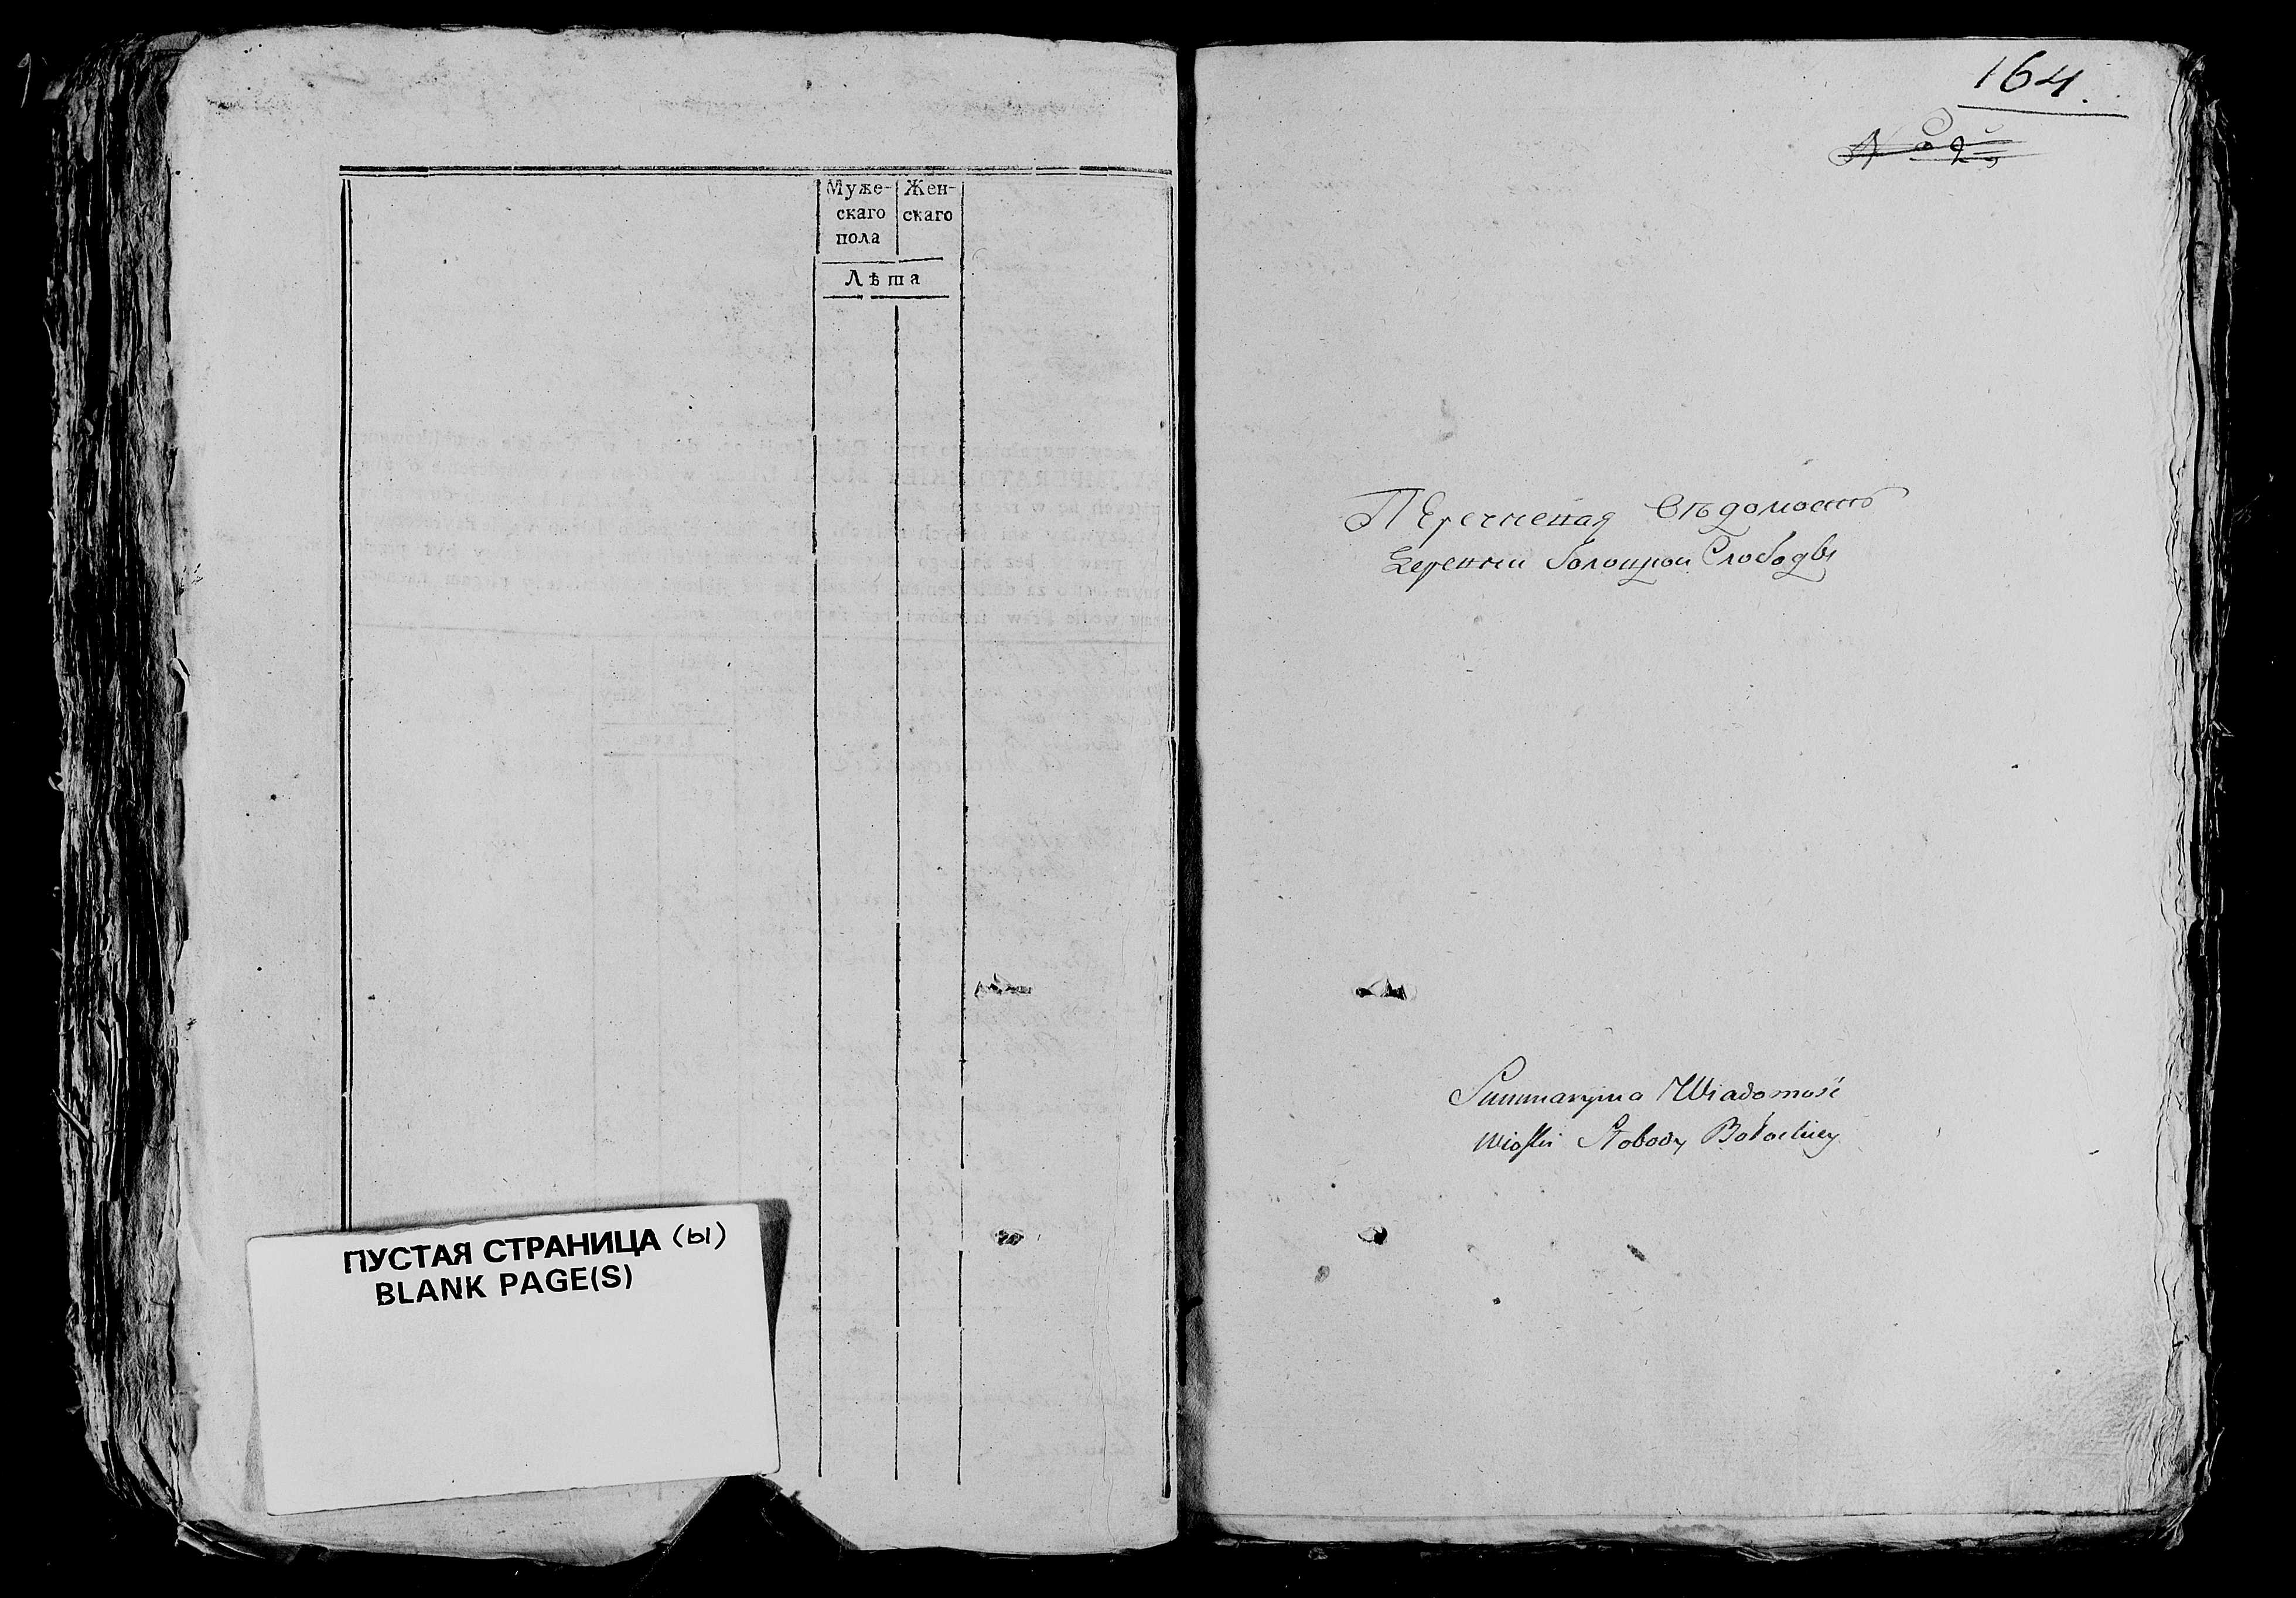 Муже- Жен-
скаго скаго
пола
Лѣта
ПУСТАЯ СТРАНИЦА (Ы)
BLANK PAGE(S)
164.
Перечневая Вѣдомость
Деревни Болоцкой Слободы
Summaryjna Wiadomość
Wioski Słobody Bołockiey